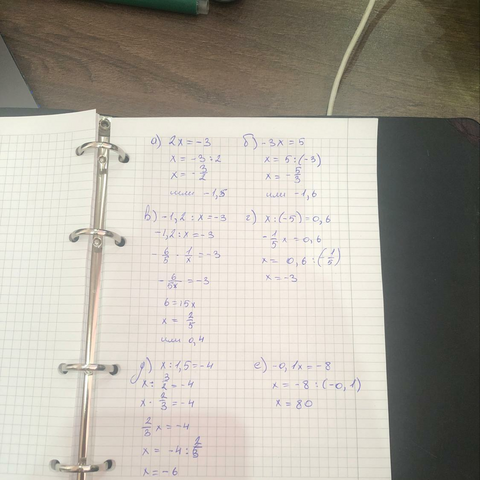 а) 2x = -3
x = -3 : 2
x = -3/2
или -1,5
б) -3x = 5
x = 5 : (-3)
x = -5/3
или -1,6
в) -1,2 : x = -3
-1,2 : x = -3
-6/5 · 1/x = -3
-6/5x = -3
6 = 15x
x = 2/5
или 0,4
г) x : (-5) = 0,6
-1/5 x = 0,6
x = 0,6 : (-1/5)
x = -3
д) x : 1,5 = -4
x : 3/2 = -4
x · 2/3 = -4
2/3 x = -4
x = -4 : 2/3
x = -6
е) -0,1x = -8
x = -8 : (-0,1)
x = 80